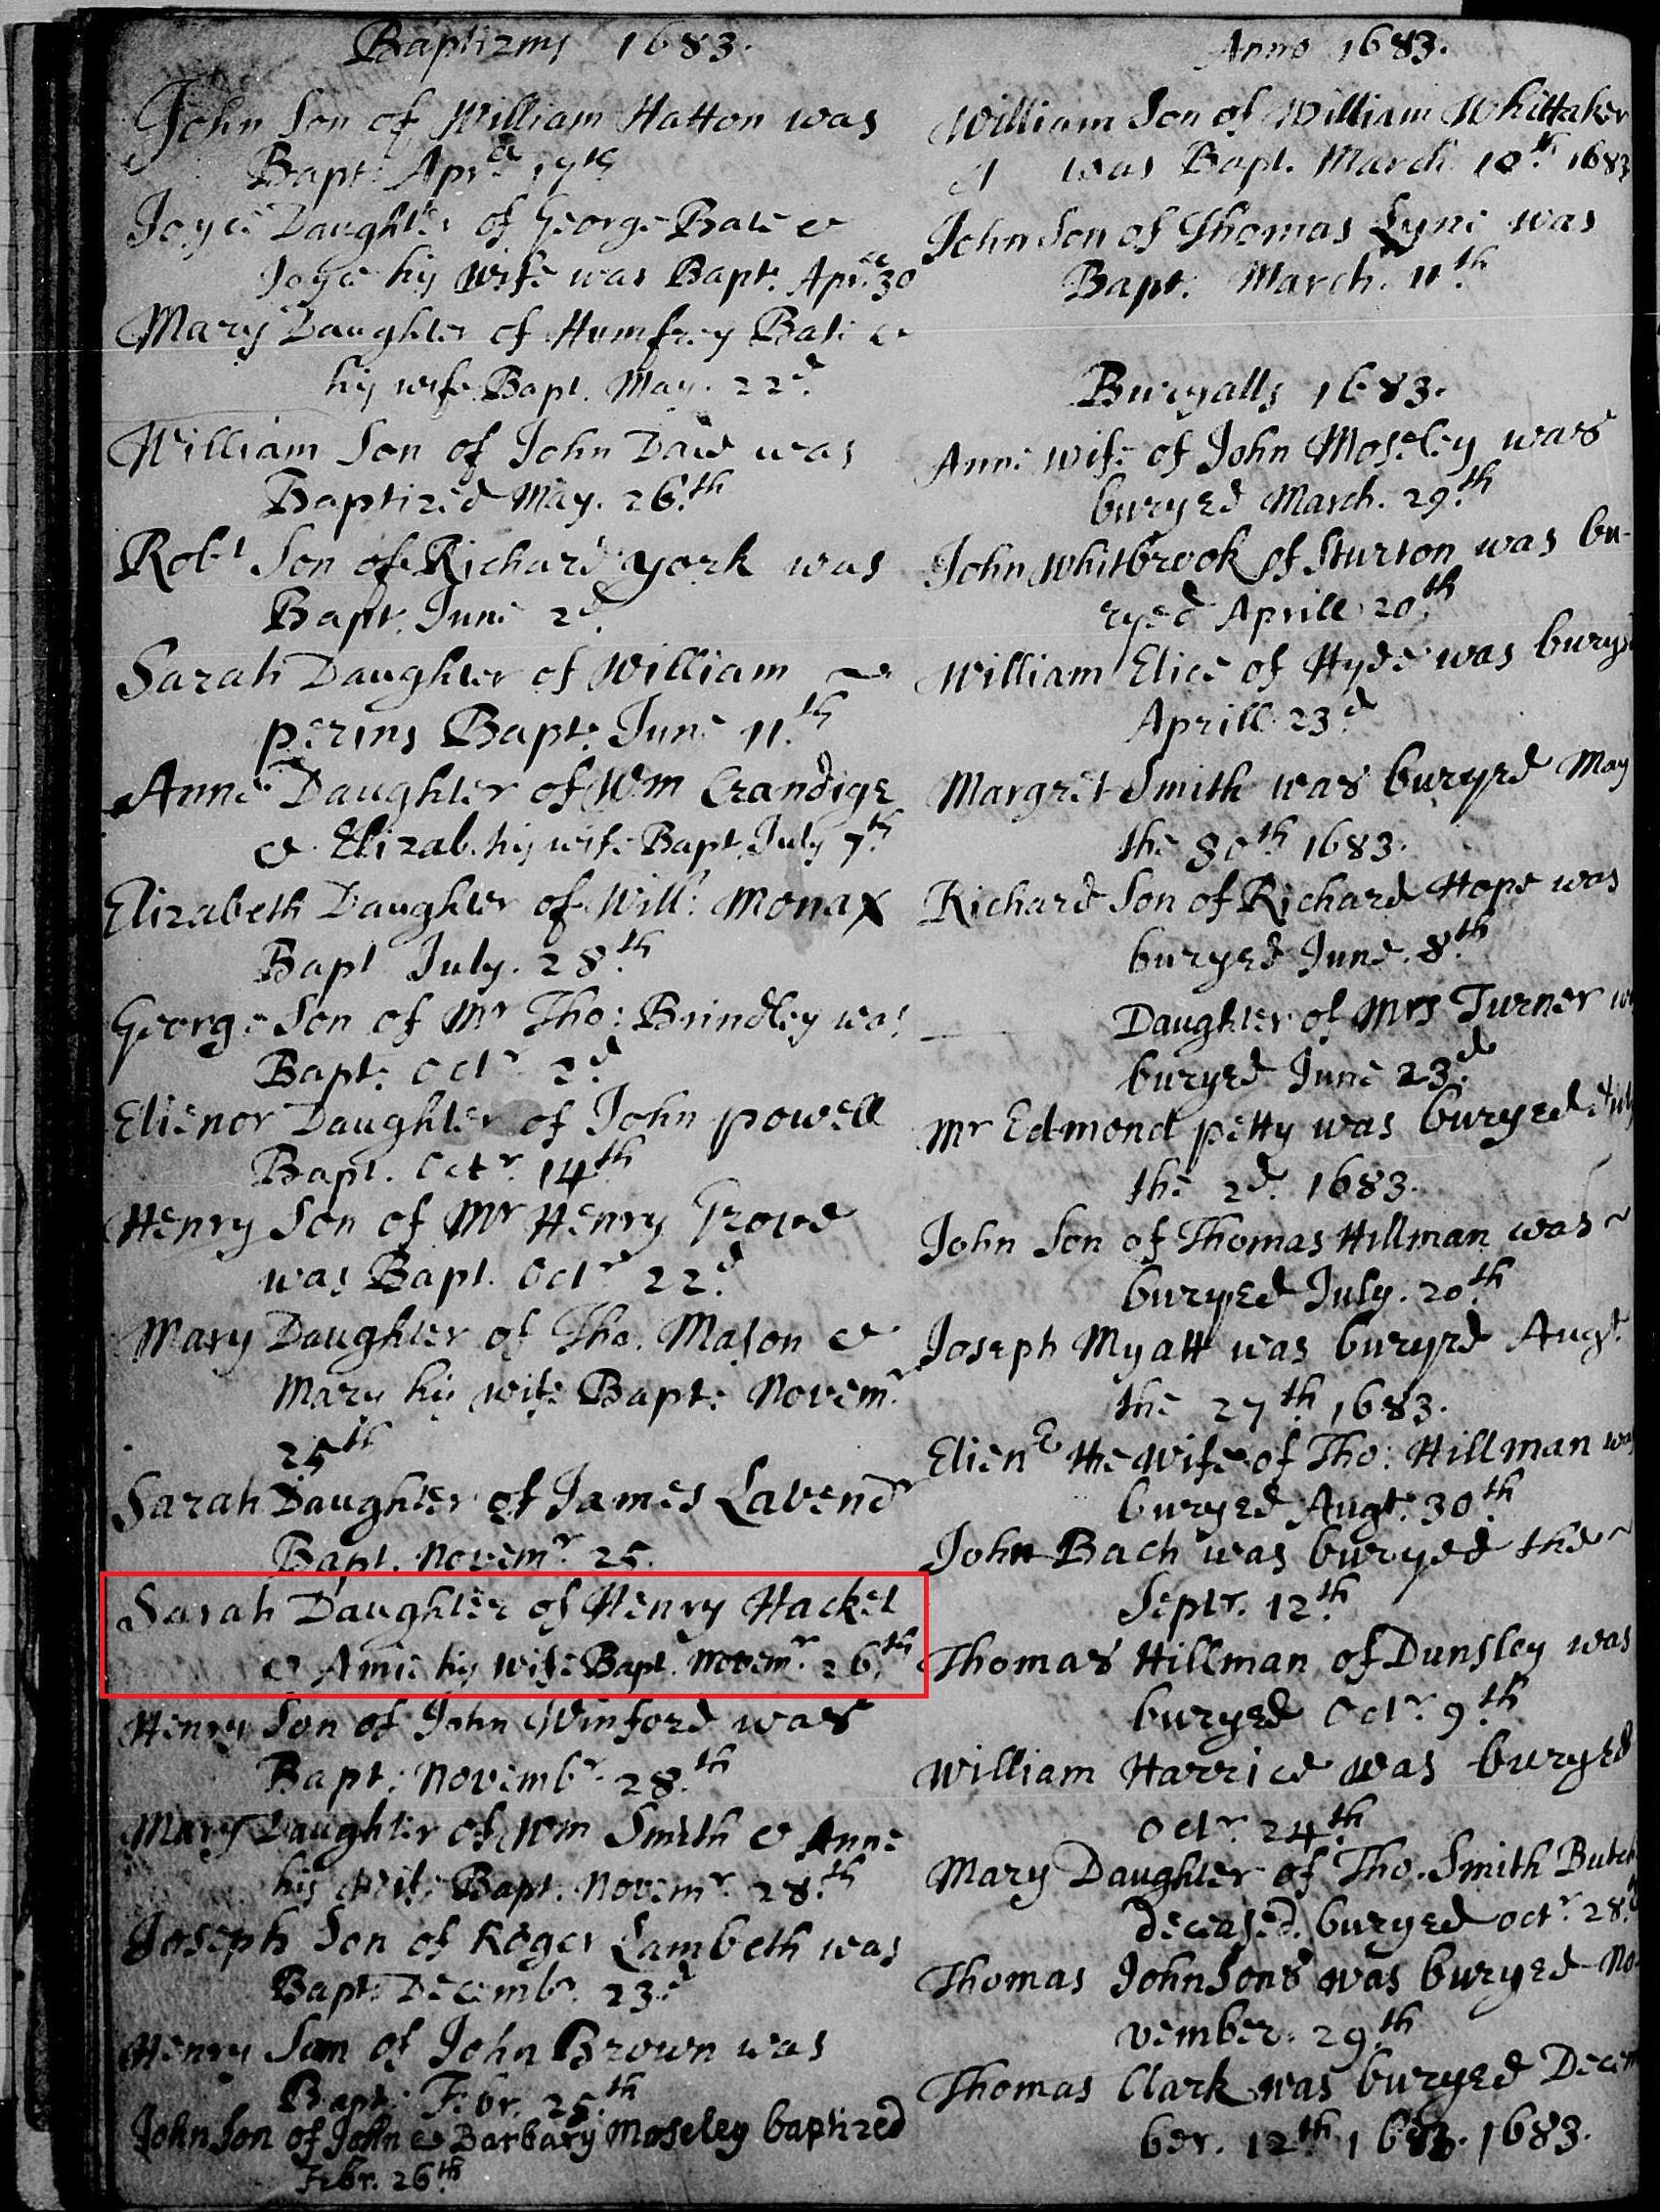 Baptizms 1683.
John Son of William Hatton was
Bapt: Apr: 17th
Joyce Daughter of George Bate &
Joyce his wife was Bapt. Apr: 30
Mary Daughter of Humfrey Bate &
his wife Bapt. May. 22d.
William Son of John Daw was
Baptized May. 26.th
Robt Son of Richard york was
Bapt. June 2d.
Sarah Daughter of William
perins Bapt: June 11.th
Anne Daughter of Wm Crandige
& Elizab. his wife Bapt. July 7th
Elizabeth Daughter of Will: Monax
Bapt July. 28.th
George Son of Mr Tho: Brindley was
Bapt: Octr 2d.
Elienor Daughter of John powell
Bapt. Octr. 14th
Henry Son of Mr Henry Grove
was Bapt. Octr 22d.
Mary Daughter of Tho. Mason &
Mary his wife Bapt: Novemr.
25th
Sarah Daughter of James Lavendr
Bapt. Novemr. 25.
Sarah Daughter of Henry Hacket
& Amie his wife Bapt. Novemr. 26.th
Henry Son of John Winford was
Bapt: Novembr. 28.th
Mary Daughter of Wm Smith & Anne
his Wife Bapt. Novemr. 28.th
Joseph Son of Roger Lambeth was
Bapt: Decembr. 23d
Henry Son of John Brown was
Bapt: Febr. 25.th
John Son of John & Barbary Moseley baptized
Febr. 26.th
Anno 1683.
William Son of William Whittaker
was Bapt. March 10.th 1683
John Son of Thomas Lyne was
Bapt: March. 11.th
Buryalls 1683.
Anne wife of John Moseley was
buryed March. 29.th
John Whitbrook of Sturton was bu-
ryed Aprill 20.th
William Elice of Hyde was buryed
Aprill 23d
Margret Smith was buryed May
the 30th 1683.
Richard Son of Richard Hope was
buryed June. 8.th
Daughter of Mrs Turner was
buryed June 23.d
Mr Edmond petty was buryed July
the 2d. 1683.
John Son of Thomas Hillman was
buryed July. 20th
Joseph Myatt was buryed Augt.
the 27th. 1683.
Elien the Wife of Tho: Hillman was
buryed Augt: 30.th
John Bach was buryed the
Septr. 12.th
Thomas Hillman of Dunsley was
buryed Octr. 9th
William Harrice was buryed
Octr. 24.th
Mary Daughter of Tho. Smith Butch
deceased. buryed octr. 28.
Thomas Johnsons was buryed No-
vember. 29.th
Thomas Clark was buryed Decem
ber. 12.th 1683. 1683.